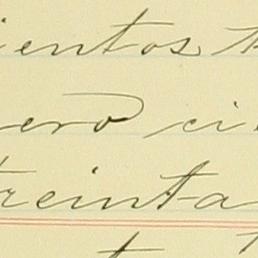 ientos t
ero ci
treinta